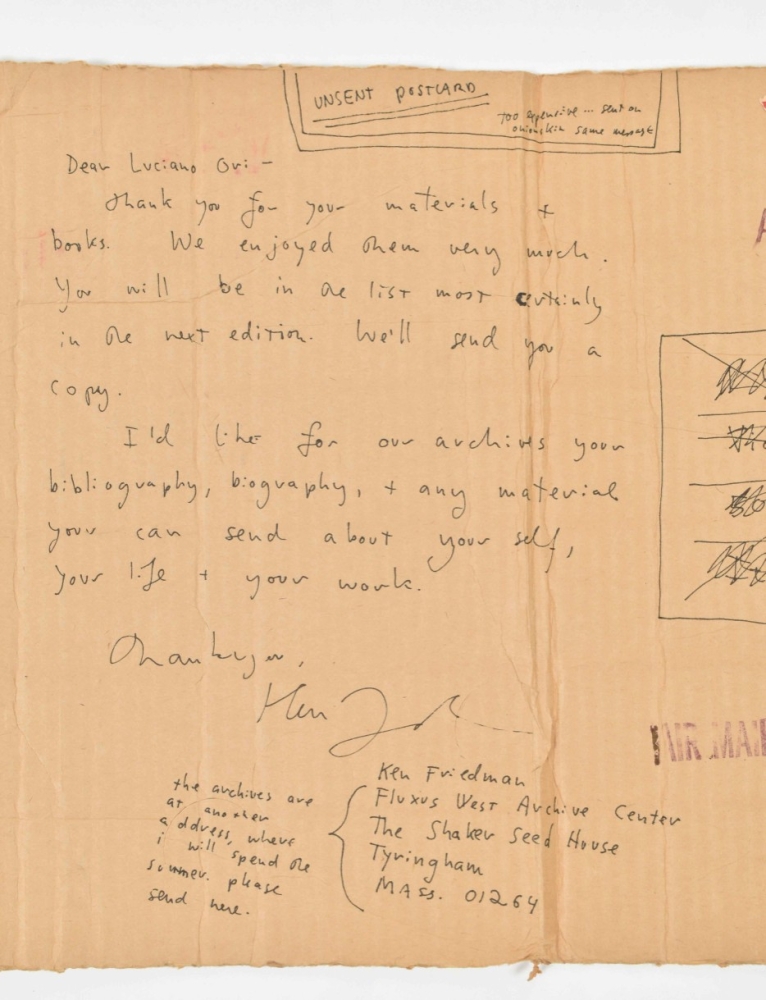 UNSENT POSTCARD
too expensive ... sent on
onionskin same message
Dear Luciano Ori:-
Thank you for your materials +
books. We enjoyed them very much.
You will be in the list most certainly
in the next edition. We'll send you a
copy.
I'd like for our archives your
bibliography, biography, + any material
your can send about your self,
your life + your work.
Thankyou,
Ken
Ken Friedman
Fluxus West Archive Center
The Shaker Seed House
Tyringham
MASS. 01264
the archives are
at another
address, where
i will spend the
summer. please
send here.
AIR MAI